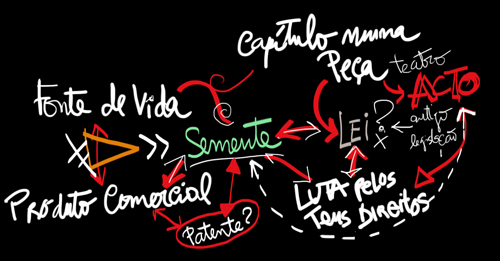 Capítulo numa
Peça teatro
ACTO
Fonte de Vida
Semente
LEi?
antiga
legislação
Produto Comercial
LUTA Pelos
Teus DireitOs
Patente?